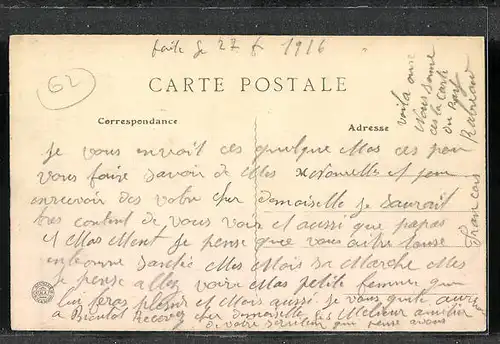 faite le 27 1916
62
CARTE POSTALE
Correspondance
Adresse
voila ou
nous some
ces la cart
du
Je vous envoit ces quelque Mos ces pour
vous faire savoir de Mes Nouvelles et pour
enrecevoir des votre cher demoiselle Je saurait
tres content de vous voir et aussi que papas
et Mas Je pense que vous aitre tous
enbonne santée Mes Mois sa Marche Mes
Je pense allez voire Mas petite femme que
lui feras plaisir et Mois aussi Je vous quite
a Bientot Recever cher demoiselle Mes Melieur
de votre serviteur qui pense avous
Francois